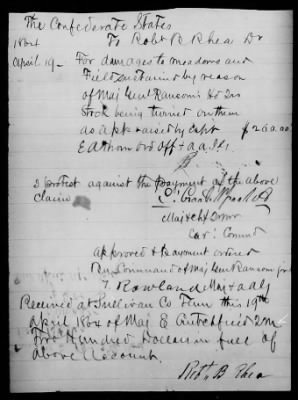 The Confederate States
1864 To Robt B. Rhea Dr
April 19 - For damages to meadows and
Field sustained by reason
of Maj Genl Ransom's Hd Qrs
Stock being turned on them
as appraised by Capt $200.00
off & a.a.
I protest against the payment of the above
claim
Maj & Ch Q mr
Cav: Comnd
approved & payment ordered
By Command of Maj Gen Ransom
T. Rowland Maj & a a g
Received at Sullivan Co Tenn this 19th
April 1864 of Maj E Crutchfield 2m
Two Hundred Dollars in full of
above account.
Robt B Rhea